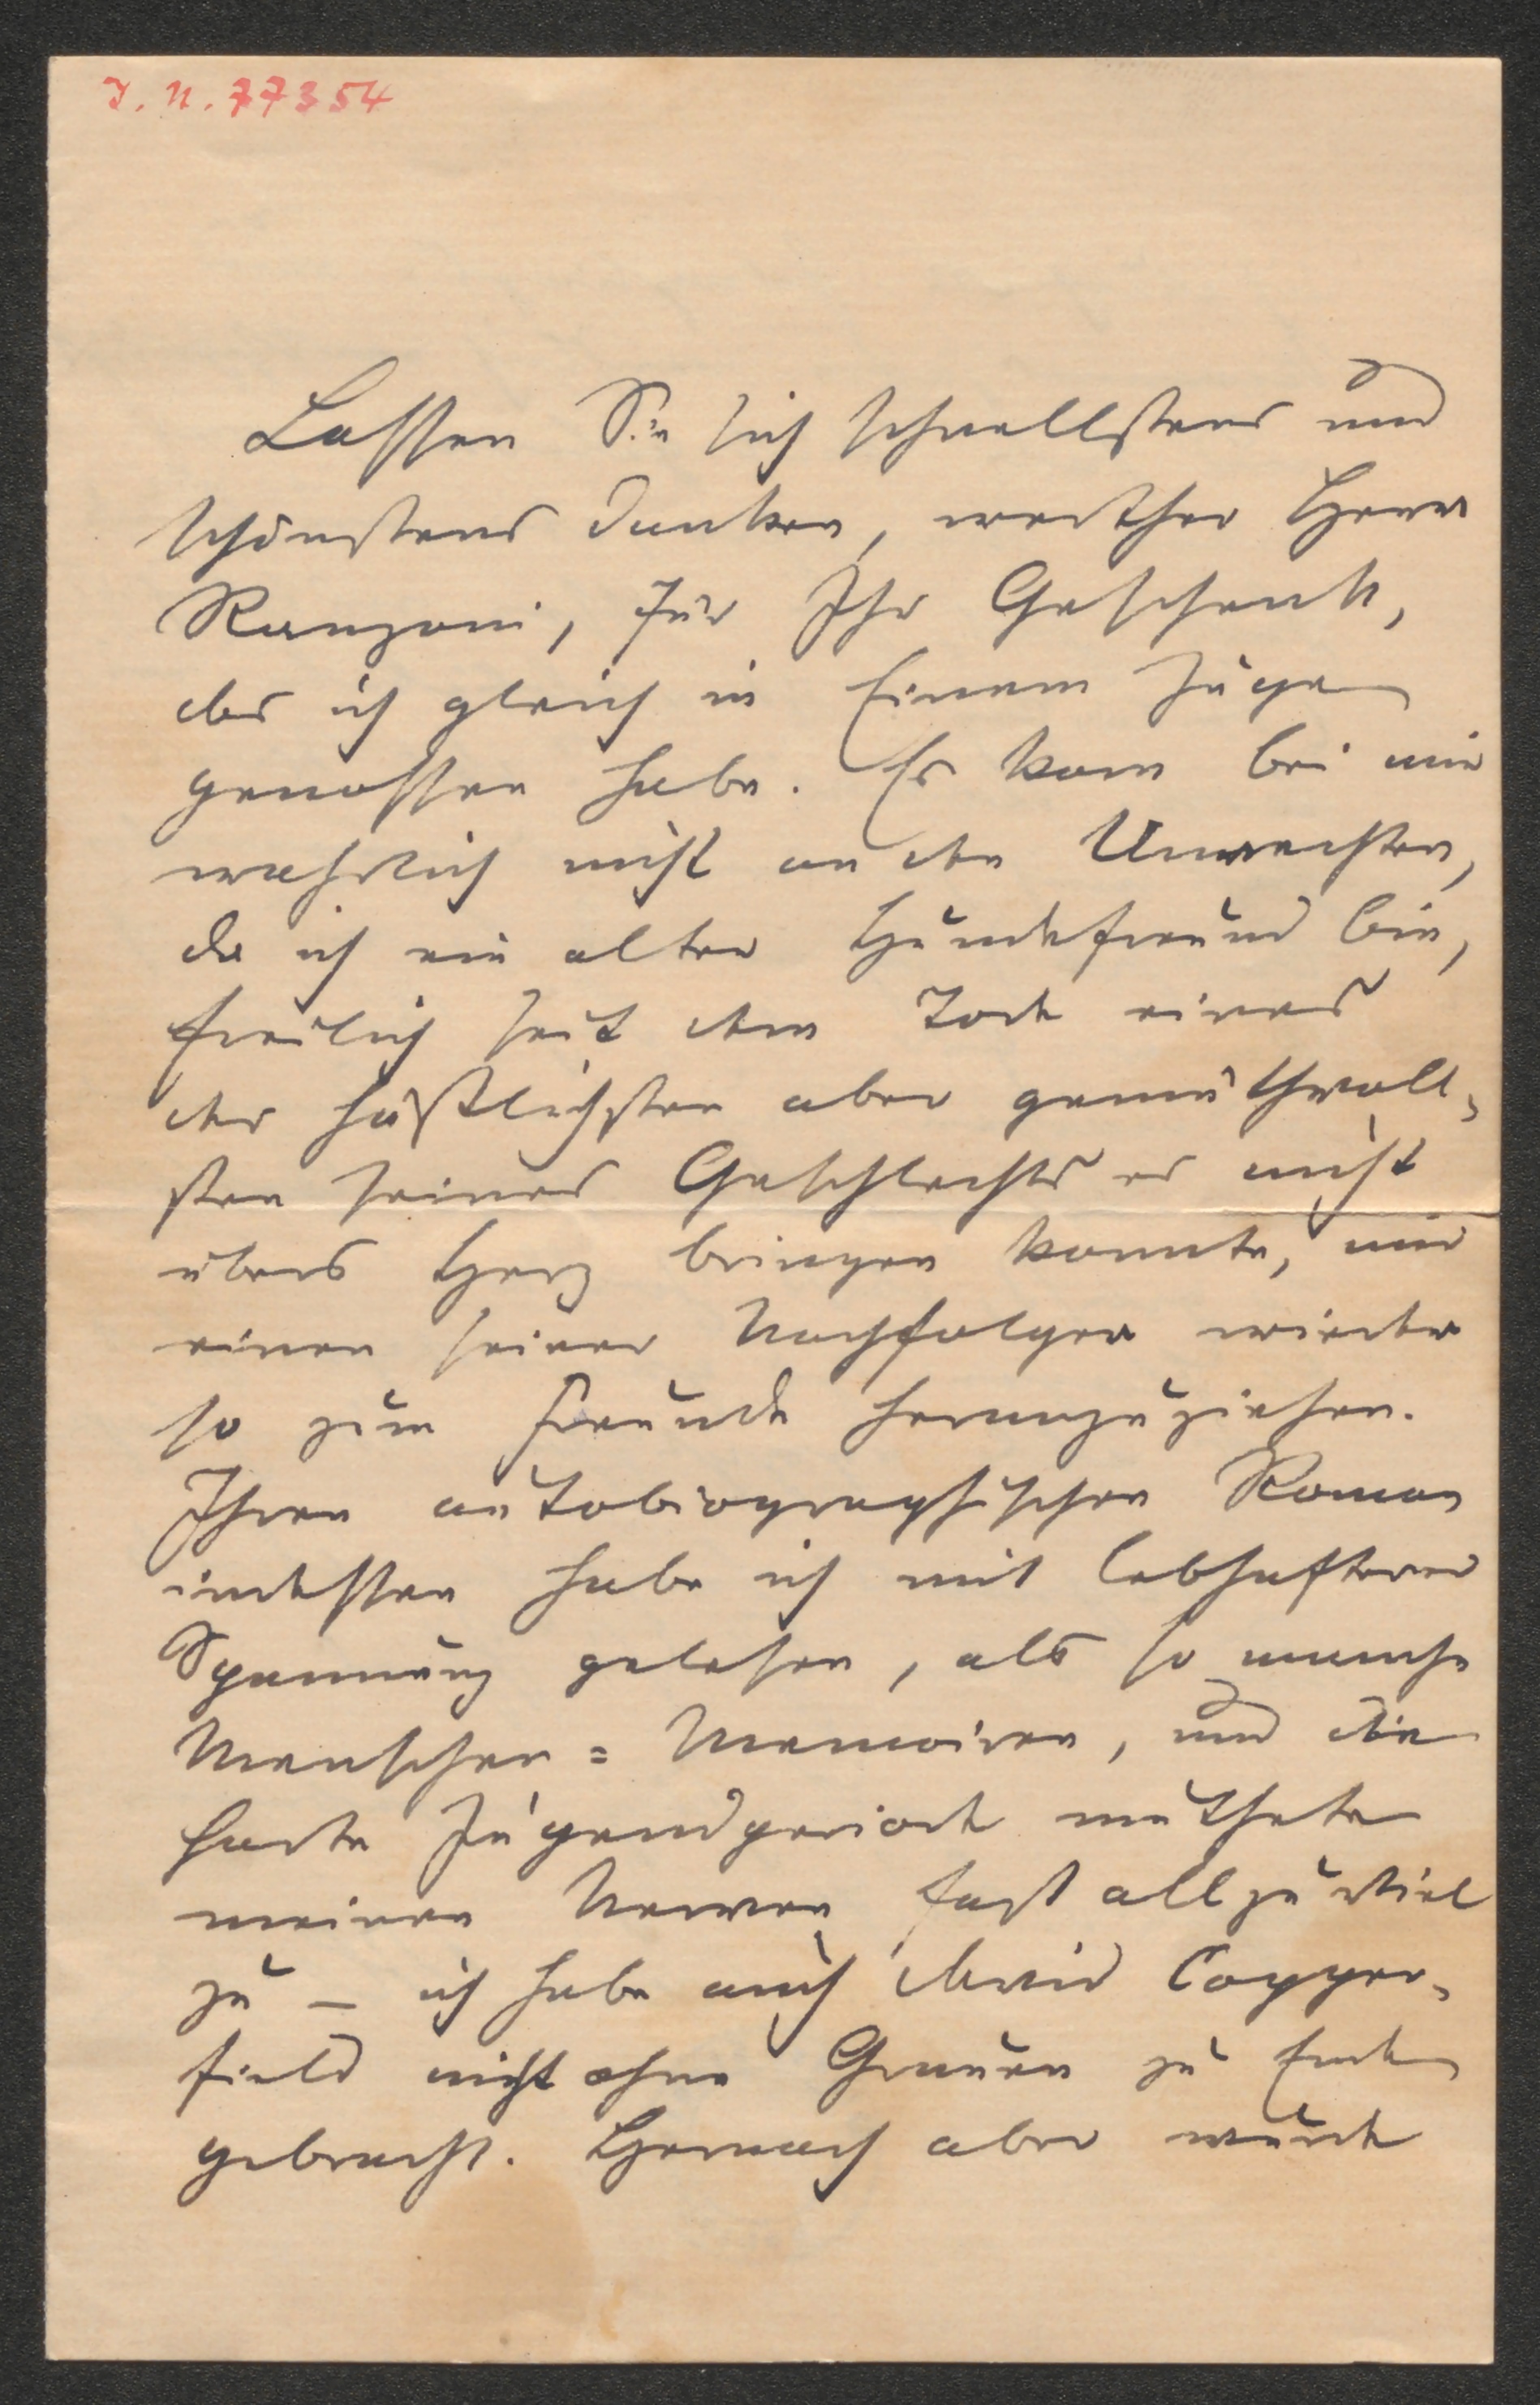 I. N. 77354
Lassen Sie sich schnellstens und
schönstens danken, werther Herr
Ranzoni, für Ihr Geschenk,
das ich gleich in Einem Zuge
genossen habe. Es kam bei mir
wahrlich nicht an den Unrechten,
da ich ein alter Hundefreund bin,
freilich seit dem Tode eines
der häßlichsten aber gemüthvoll-
sten seines Geschlechts es nicht
übers Herz bringen konnte, mir
einen seiner Nachfolger wieder
so zum Freunde heranzuziehen.
Ihren autobiographischen Roman
indessen habe ich mit lebhafterer
Spannung gelesen, als so manche
Menschen-Memoiren, und die
harte Jugendperiode muthete
meinen Nerven fast allzu viel
zu – ich habe auch David Copper-
field nicht ohne Grauen zu Ende
gebracht. Hernach aber wurde